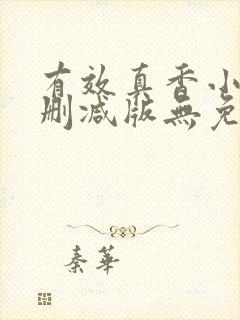 有效真香小
删减版無免
秦華